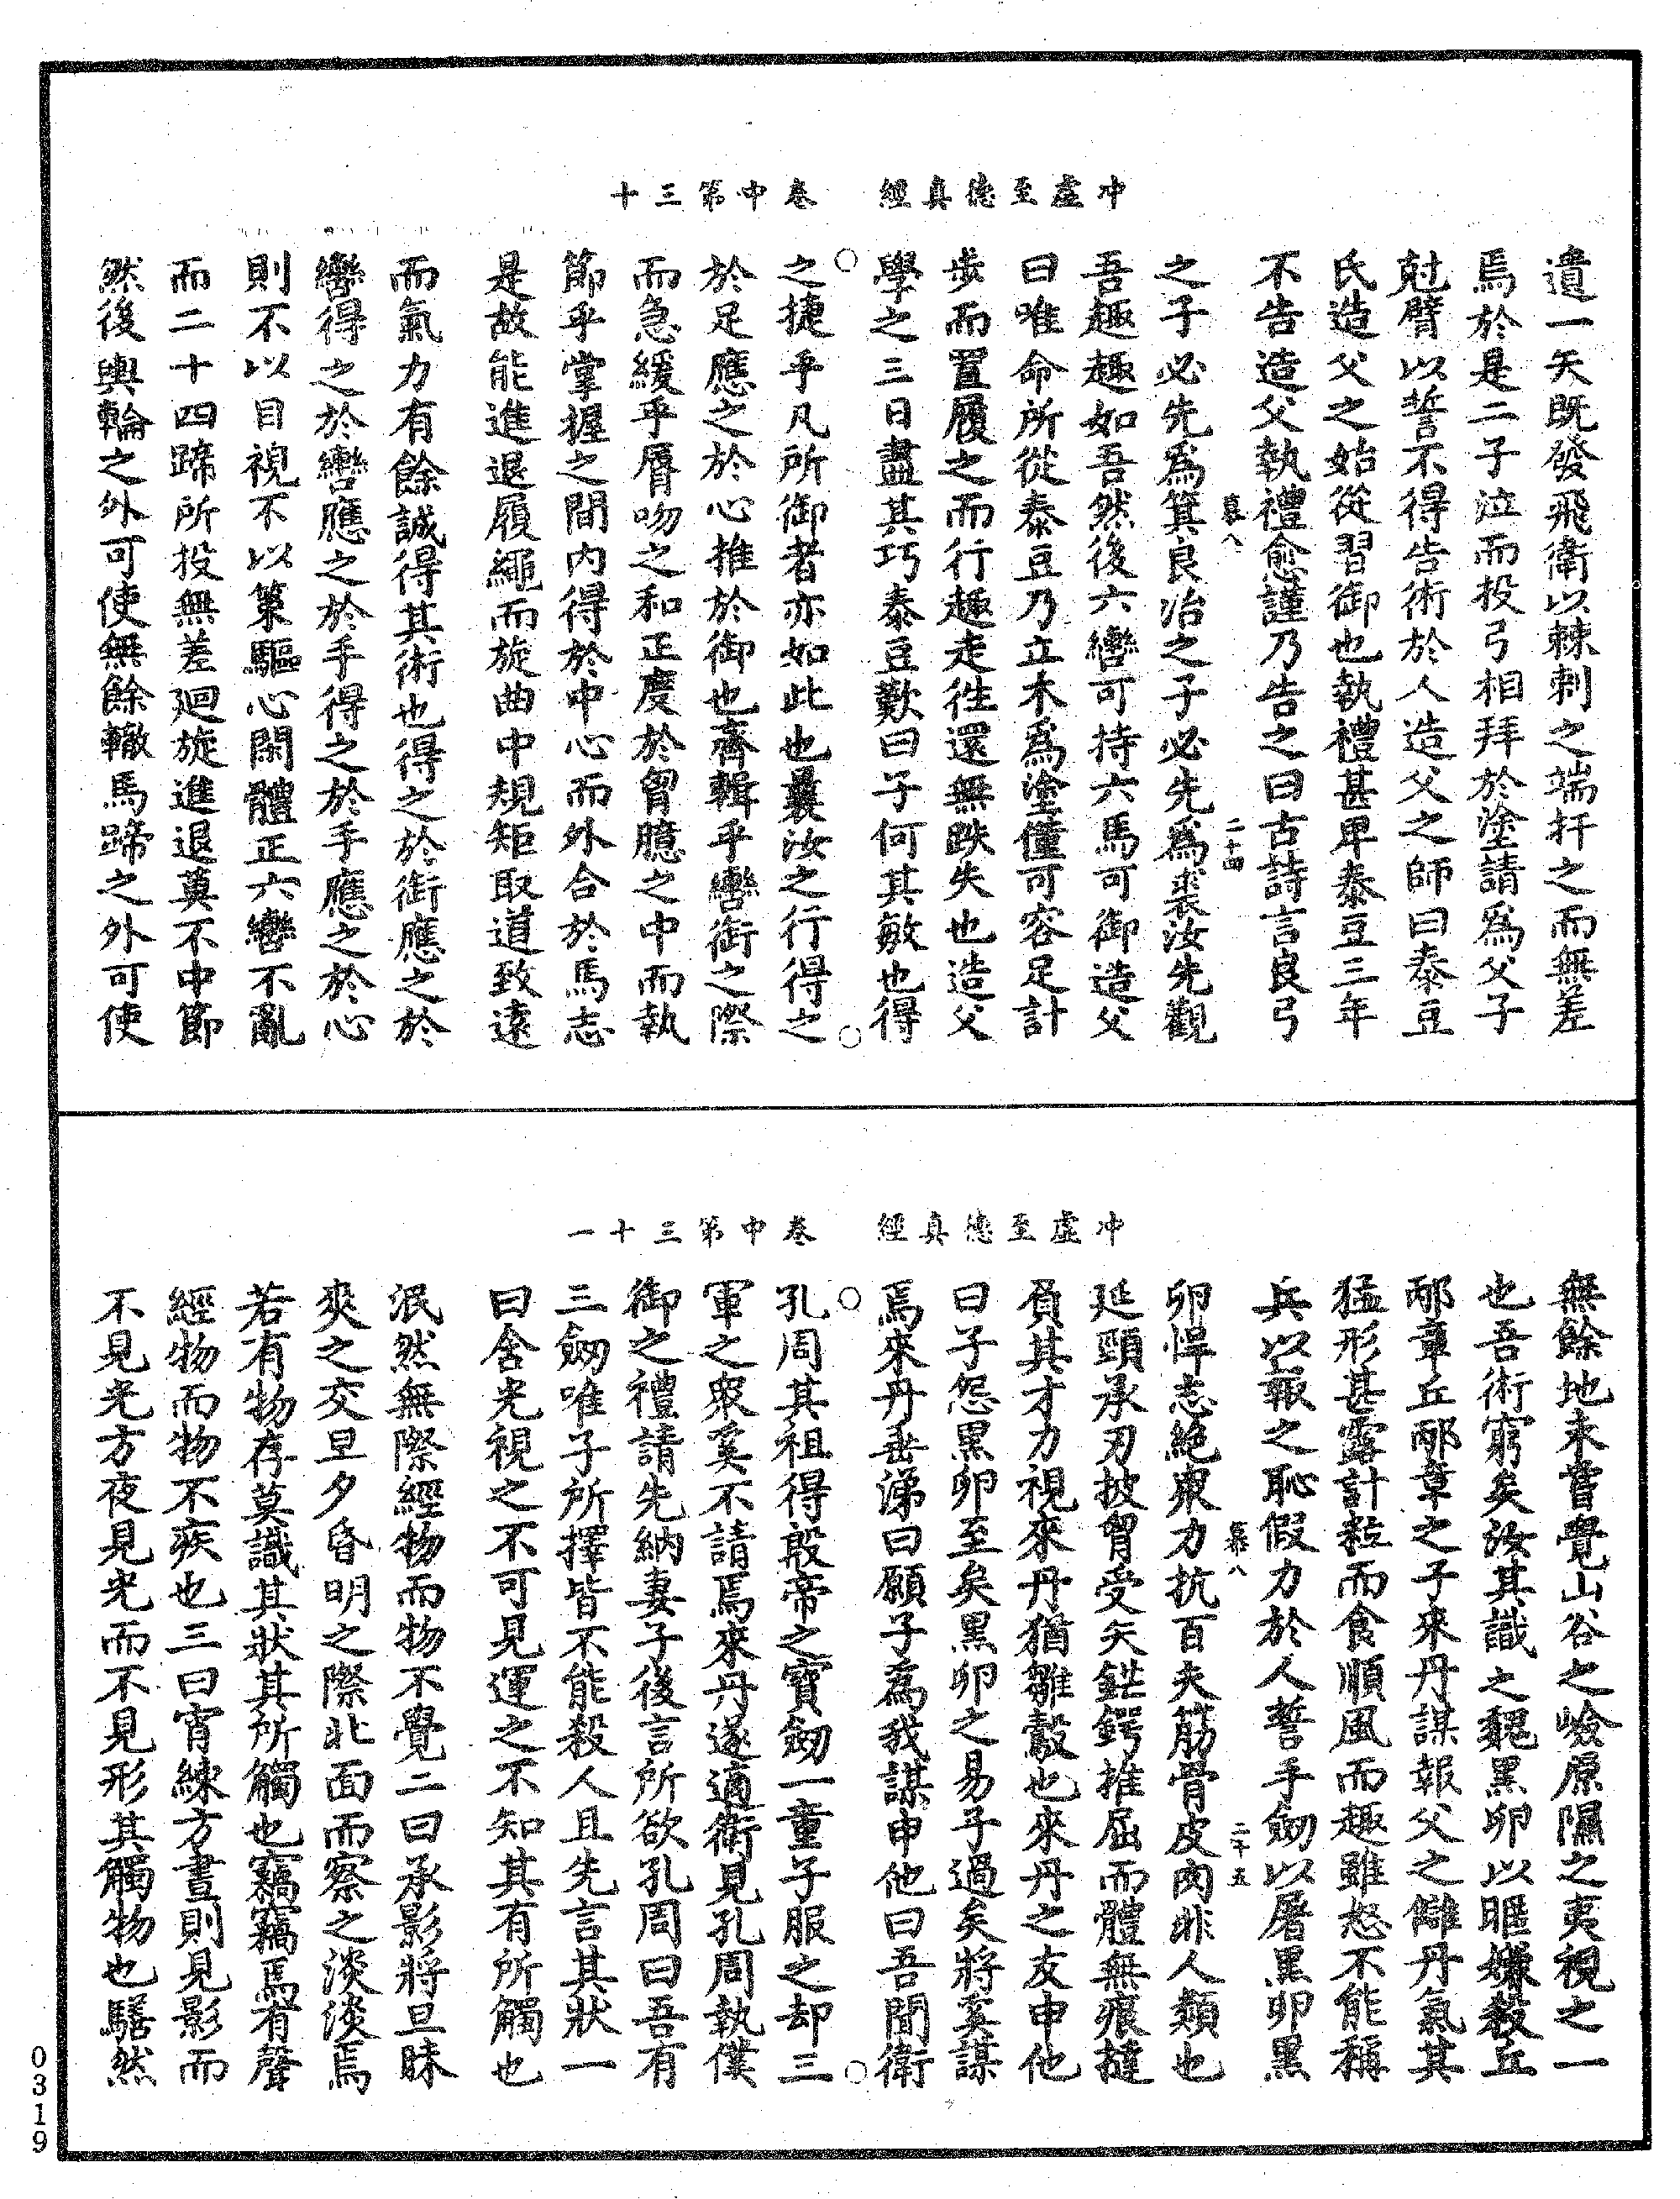 冲虛至德真經　卷中第三十
遺一矢既發飛衛以棘刺之端扞之而無差
焉於是二子泣而投弓相拜於塗請爲父子
尅臂以誓不得告術於人造父之師曰泰豆
氏造父之始從習御也執禮甚卑泰豆三年
不告造父執禮愈謹乃告之曰古詩言良弓
慕八　二十四
之子必先爲箕良冶之子必先爲裘汝先觀
吾趣趣如吾然後六轡可持六馬可御造父
曰唯命所從泰豆乃立木爲塗僅可容足計
步而置履之而行趣走往還無跌失也造父
學之三日盡其巧泰豆歎曰子何其敏也得
之捷乎凡所御者亦如此也曩汝之行得之
於足應之於心推於御也齊輯乎轡銜之際
而急緩乎脣吻之和正度於胷臆之中而執
節乎掌握之間內得於中心而外合於馬志
是故能進退履繩而旋曲中規矩取道致遠
而氣力有餘誠得其術也得之於銜應之於
轡得之於轡應之於手得之於手應之於心
則不以目視不以策驅心閑體正六轡不亂
而二十四蹄所投無差廻旋進退莫不中節
然後輿輪之外可使無餘轍馬蹄之外可使
冲虛至德真經　卷中第三十一
無餘地未嘗覺山谷之嶮原隰之夷視之一
也吾術窮矣汝其識之魏黑卵以暱嫌殺丘
邴章丘邴章之子來丹謀報父之讎丹氣甚
猛形甚露計粒而食順風而趣雖怒不能稱
兵以報之恥假力於人誓手劒以屠黑卵黑
慕八　二十五
卵悍志絕衆力抗百夫筋骨皮肉非人類也
延頸承刃披胷受矢鋩鍔摧屈而體無痕撻
負其才力視來丹猶雛鷇也來丹之友申他
曰子怨黑卵至矣黑卵之易子過矣將奚謀
焉來丹垂涕曰願子爲我謀申他曰吾聞衛
孔周其祖得殷帝之寶劒一童子服之却三
軍之衆奚不請焉來丹遂適衛見孔周執僕
御之禮請先納妻子後言所欲孔周曰吾有
三劒唯子所擇皆不能殺人且先言其狀一
曰含光視之不可見運之不知其有所觸也
泯然無際經物而物不覺二曰承影將旦昧
爽之交旦夕昏明之際北面而察之淡淡焉
若有物存莫識其狀其所觸也竊竊焉有聲
經物而物不疾也三曰宵練方晝則見影而
不見光方夜見光而不見形其觸物也騞然
0319